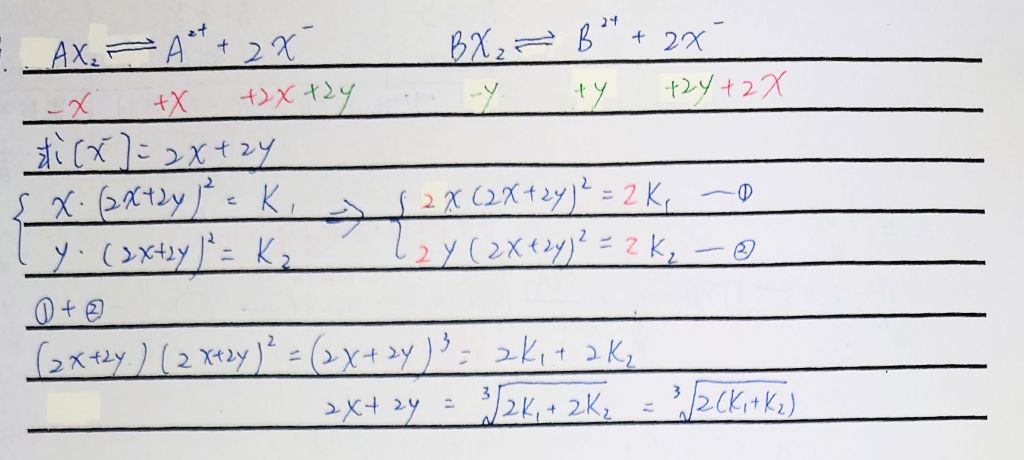 AX₂ ⇌ A²⁺ + 2X⁻ BX₂ ⇌ B²⁺ + 2X⁻
-x +x +2x +2y -y +y +2y +2x
求[X⁻] = 2x+2y
{ x·(2x+2y)² = K₁ ⇒ { 2x(2x+2y)² = 2K₁ —①
y·(2x+2y)² = K₂ 2y(2x+2y)² = 2K₂ —②
①+②
(2x+2y)(2x+2y)² = (2x+2y)³ = 2K₁ + 2K₂
2x+2y = ³√(2K₁+2K₂) = ³√(2(K₁+K₂))